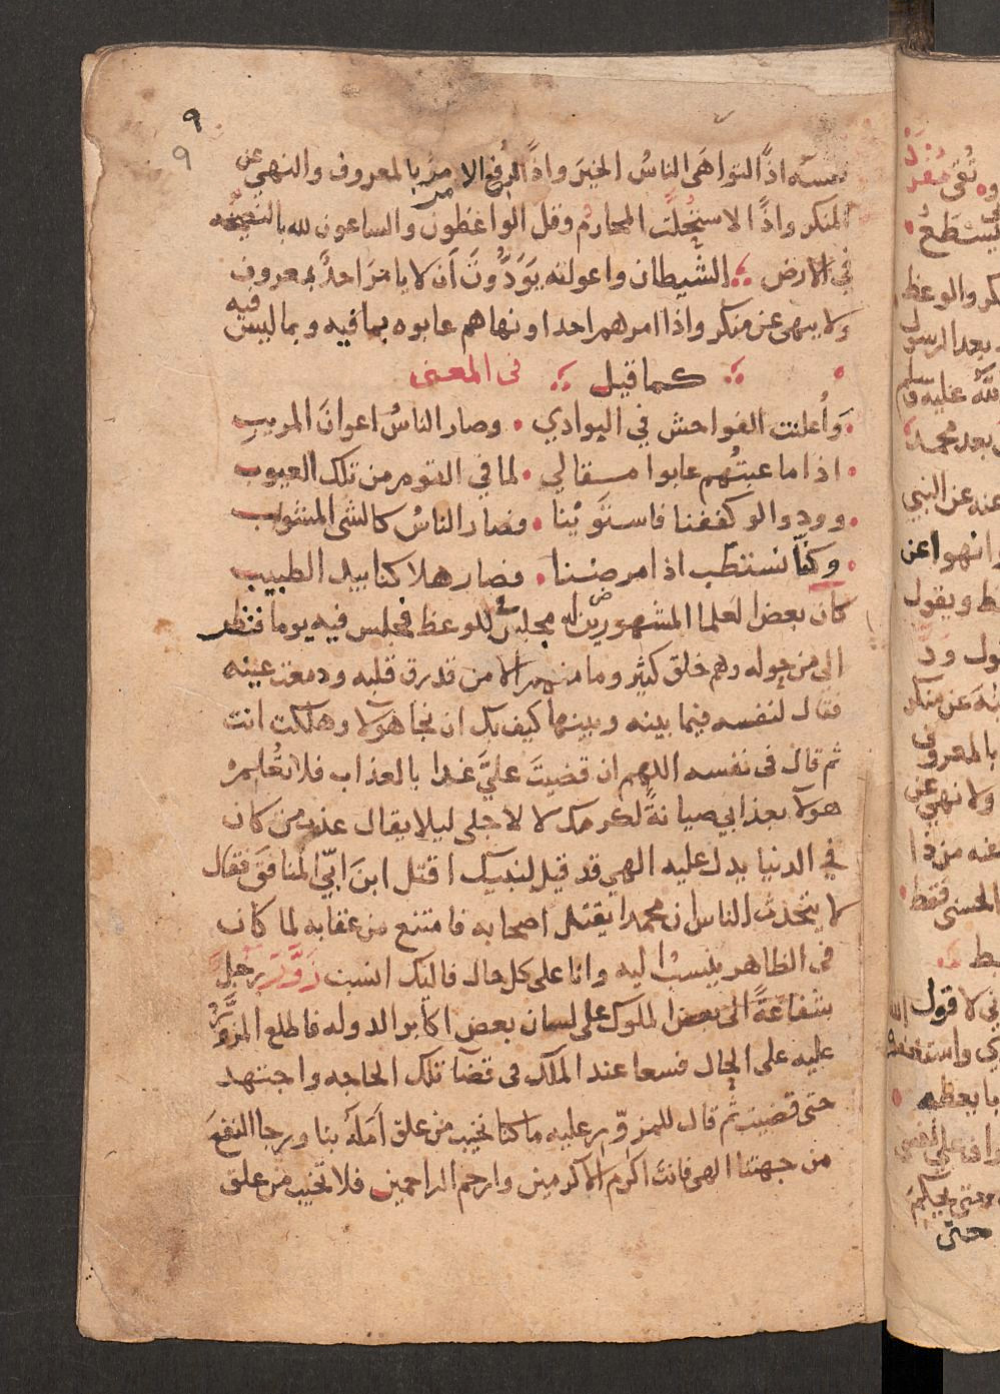 ٩
٩
نفسه اذًا لتواهَى الناسُ الخيرَ واذًا لرُفع الامرُ بالمعروف والنهي عن
المنكر واذًا لاستُحلّت المحارم وقل الواعظون والساعون لله بالنصيحه
في الارض الشيطان واعوانه يَوَدُّونَ اَن لا يامرَ احدٌ بمعروف
ولا ينهى عن منكر واذا امرهم احد او نهاهم عابوه بما فيه وبما ليس فيه
كما قيل في المعنى
وَاُعلنت الفواحش في البوادي وصار الناسُ اعوانَ المريب
اذا ما عبتُهم عابوا مقالي لما في القوم من تلك العيوب
وودوا لو كففنا فاستوَيْنا فصار الناسُ كالشى المشوب
وكنّا نستطب اذا مرضنا فصار هلاكنا بيد الطبيب
كان بعض العلما المشهورين له مجلس للوعظ فجلس فيه يوما فنظر
الى من حوله وهم خلق كثير وما منهم الا من قد رق قلبه ودمعت عينه
فقال لنفسه فيما بينه وبينها كيف بك ان نجا هولا وهلكت انت
ثم قال فى نفسه اللهم ان قضيتَ عليَّ غدا بالعذاب فلا تُعلِم
هولا بعذابي صيانةً لكرمك لا لاجلى ليلا يقال عذب من كان
في الدنيا يدل عليه الهي قد قيل لنبيك اقتل ابنَ ابيّ المنافقَ فقال
لا يتحدث الناس ان محمدا يقتل اصحابه فامتنع من عقابه لما كان
فى الظاهر ينسب اليه وانا على كل حال فاليك انسب زَوَّرَ رجل
بشفاعةً الى بعض الملوك على لسان بعض اكابر الدوله فاطلع المزوَّرُ
عليه على الحال فسعا عند الملك في قضآ تلك الحاجه واجتهد
حتى قضيت ثم قال للمزوّر عليه ما كنا نخيب من علق اَمله بنا ورجا النفعَ
من جهتنا الهي فانت اكرم الاكرمين وارحم الراحمين فلا تخيب من علق